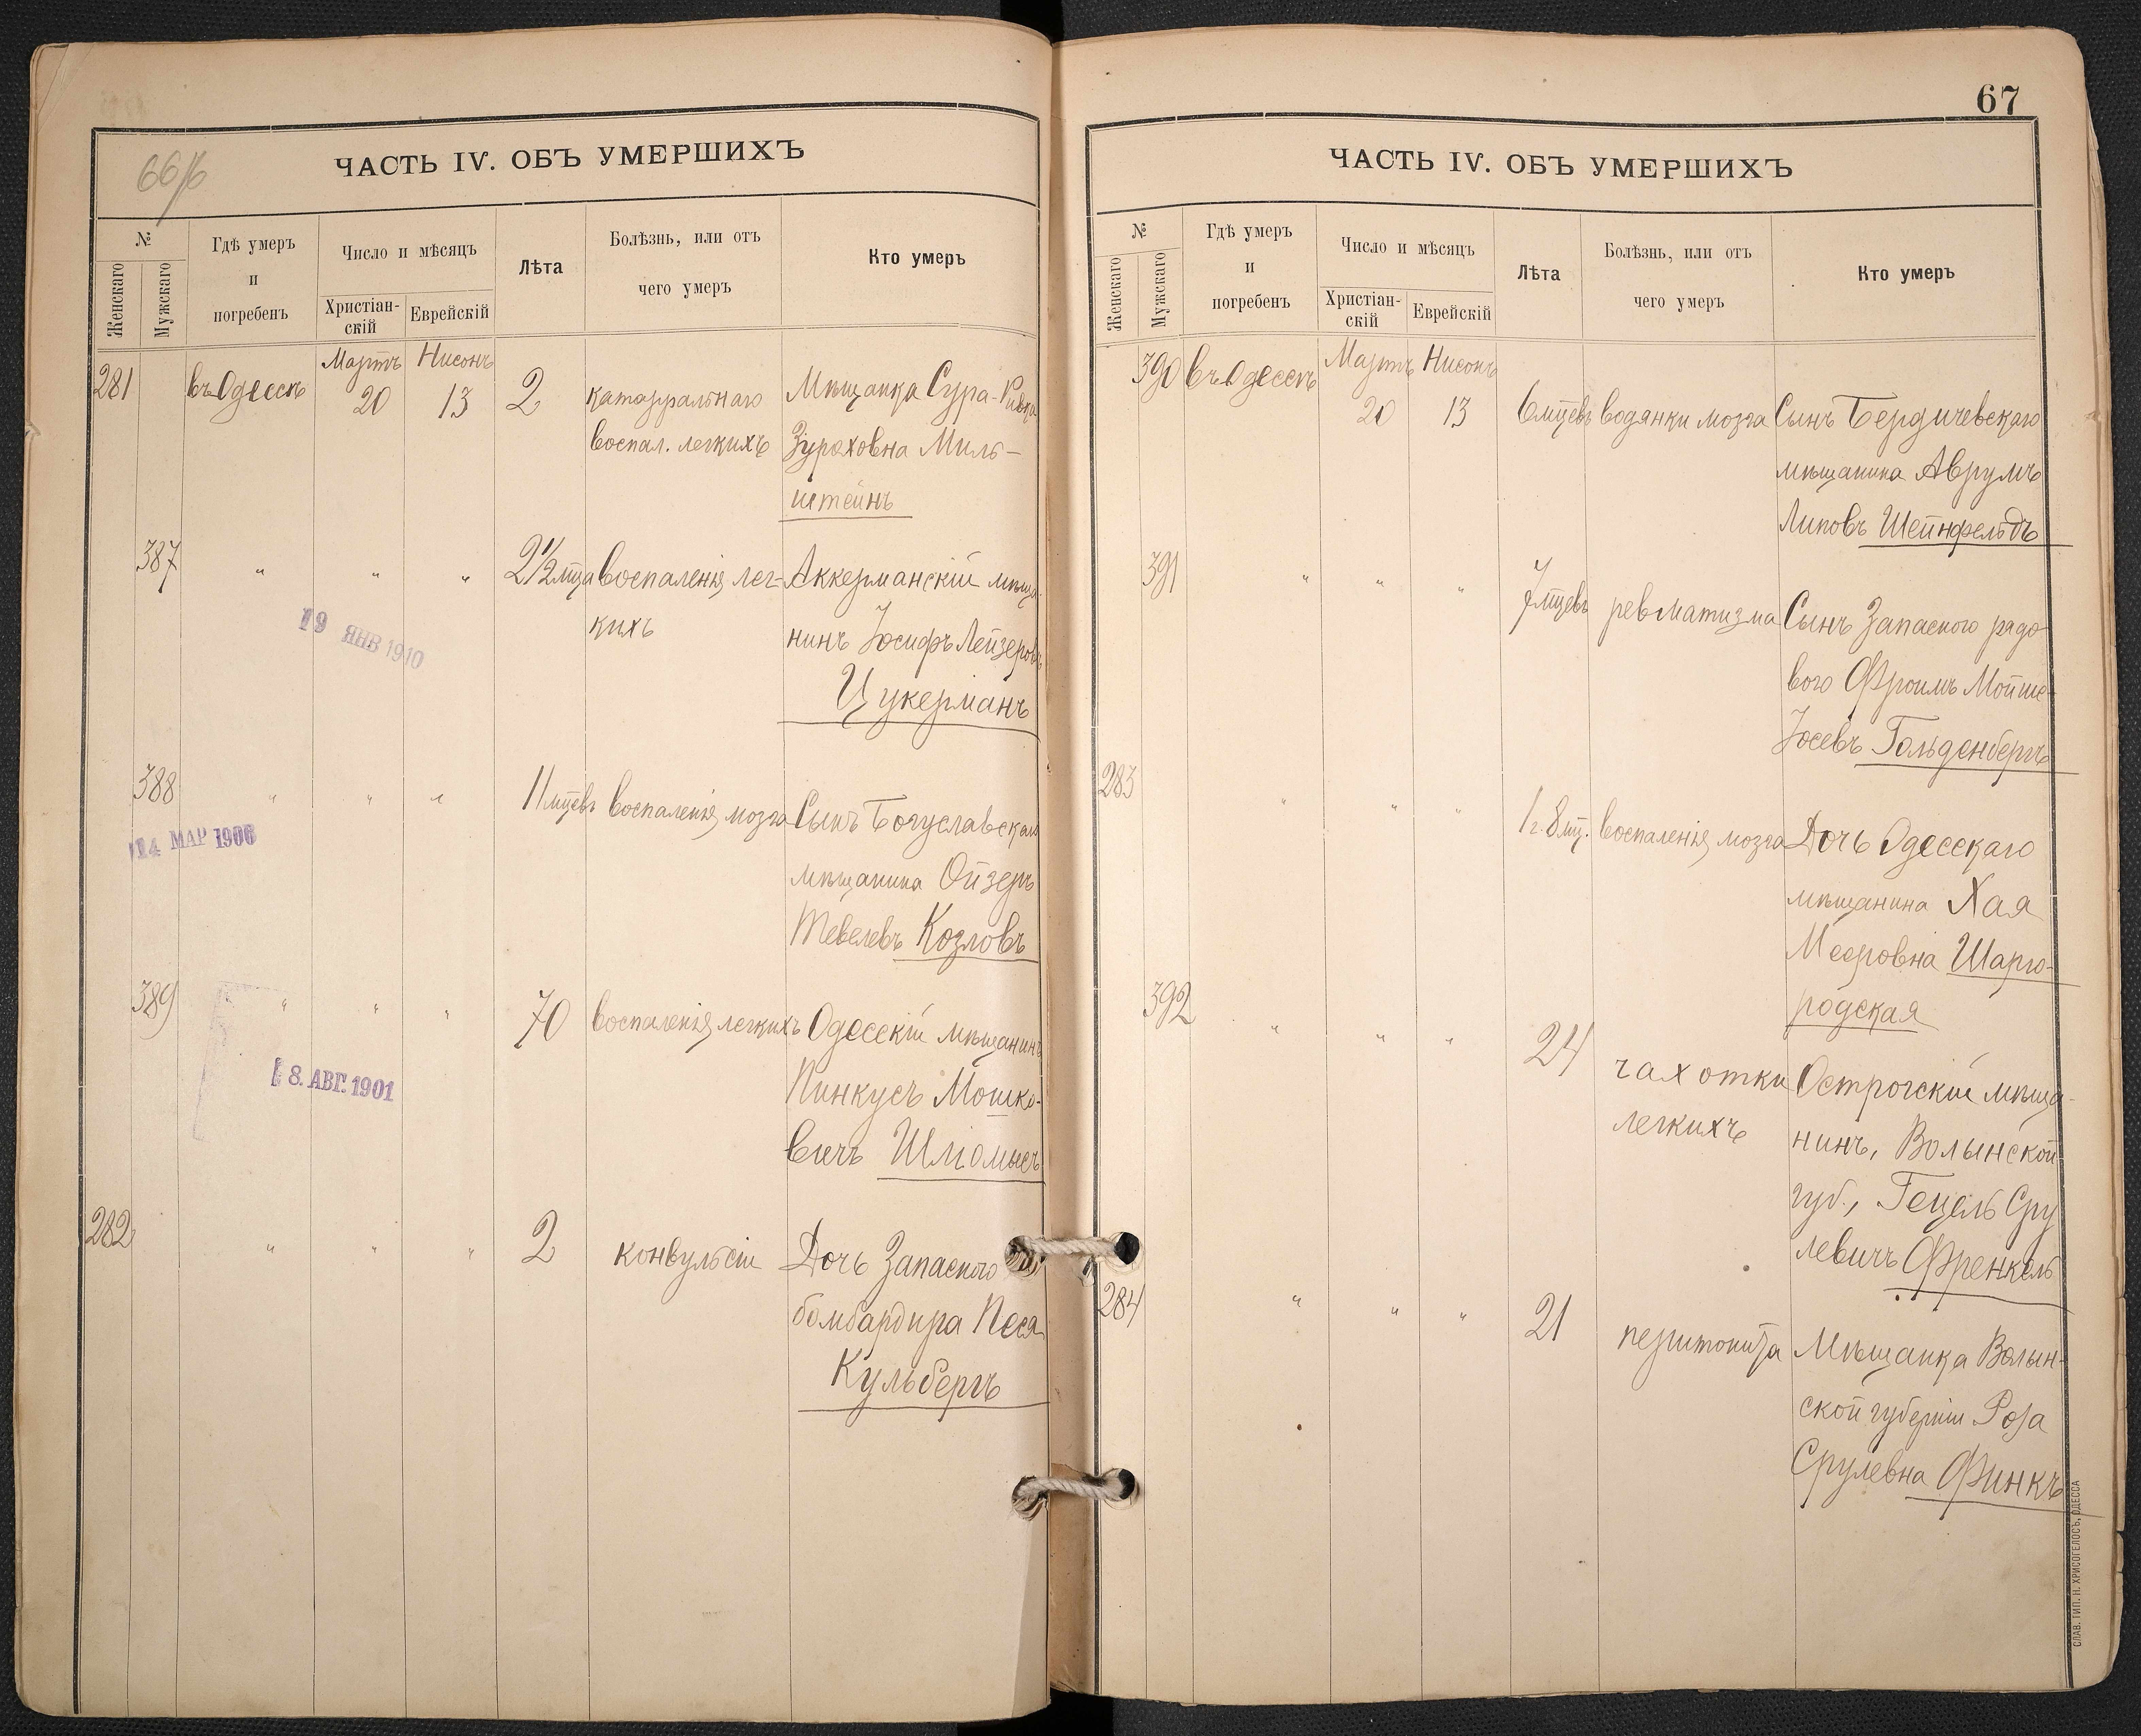 66/б
ЧАСТЬ IV. ОБЪ УМЕРШИХЪ
№
Женскаго
Мужскаго
Гдѣ умеръ
и
погребенъ
Число и мѣсяцъ
Христіан-
скій
Еврейскій
Лѣта
Болѣзнь, или отъ
чего умеръ
Кто умеръ
281 въ Одессѣ Мартъ 20 Нисонъ 13 2 катарральнаго Мѣщанка Сура-Ривка
воспал. легкихъ Зураховна Миль-
штейнъ
387 " " " 2½ мца воспаленія лег- Аккерманскій мѣща-
кихъ нинъ Іосифъ Лейзеровъ
Цукерманъ
19 ЯНВ 1910
388 " " " 11 мцевъ воспаленія мозга Сынъ Богуславскаго
14 МАР 1906
мѣщанина Ойзеръ
Тевелевъ Козловъ
389 " " " 70 воспаленія легкихъ Одесскій мѣщанинъ
8. АВГ. 1901
Пинкусъ Мошко-
вичъ
282 " " " 2 конвульсіи Дочь Запасного
бомбардира Песя
Кульбергъ
67
ЧАСТЬ IV. ОБЪ УМЕРШИХЪ
№
Женскаго
Мужскаго
Гдѣ умеръ
и
погребенъ
Число и мѣсяцъ
Христіан-
скій
Еврейскій
Лѣта
Болѣзнь, или отъ
чего умеръ
Кто умеръ
390 въ Одессѣ Мартъ 20 Нисонъ 13 6 мцевъ водянки мозга Сынъ Бердичевскаго
мѣщанина Аврумъ
Липовъ Шейнфельдъ
391 " " " 7 мцевъ ревматизма Сынъ Запасного рядо-
вого Фроимъ Мойше-
Іосевъ Гольденбергъ
283 " " " 1 г. 8 мц. воспаленія мозга Дочь Одесскаго
мѣщанина Хая
Мееровна Шарго-
родская
392 " " " 24 чахотки Острогскій мѣща-
легкихъ нинъ, Волынской
губ., Гецель Сру
левичъ Френкель
284 " " " 21 перитонита Мѣщанка Волын-
ской губерніи Роза
Срулевна Финкъ
СЛАВ. ТИП. Н. ХРИСОГЕЛОСЪ, ОДЕССА